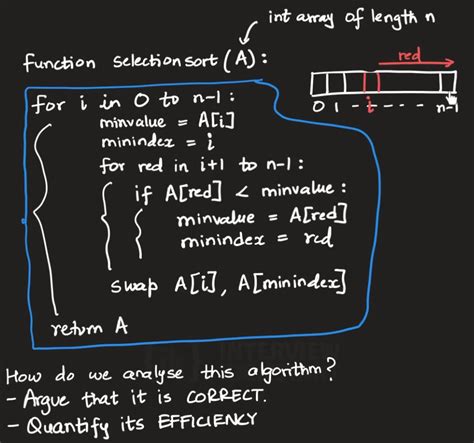 int array of length n
function selectionsort (A) :
red
for i in 0 to n-1 :
0 1 - i - - - - n-1
minvalue = A[i]
minindex = i
for red in i+1 to n-1 :
if A[red] < minvalue :
minvalue = A[red]
minindex = red
swap A[i], A[minindex]
return A
How do we analyse this algorithm?
- Argue that it is CORRECT.
- Quantify its EFFICIENCY